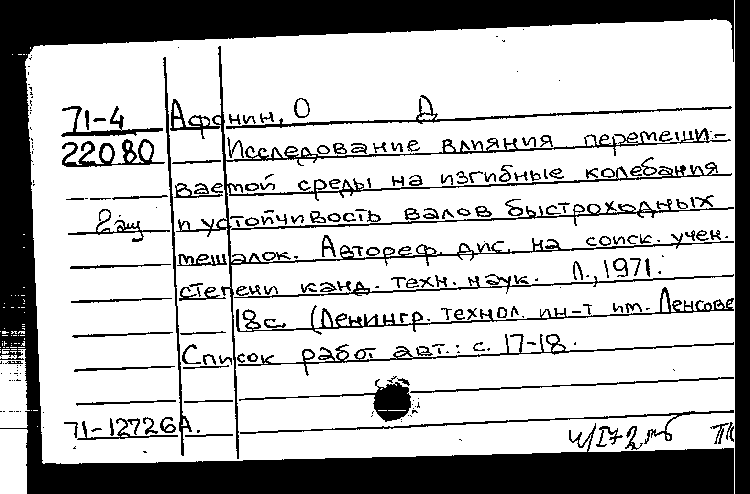 71-4 Афонин, О Д
22080 Исследование влияния перемеши-
ваемой среды на изгибные колебания
2 и устойчивость валов быстроходных
мешалок. Автореф. дис. на соиск. учен.
степени канд. техн. наук. Л., 1971.
18с. (Ленингр. технол. ин-т им. Ленсове
Список работ авт.: с. 17-18.
71-12726А.